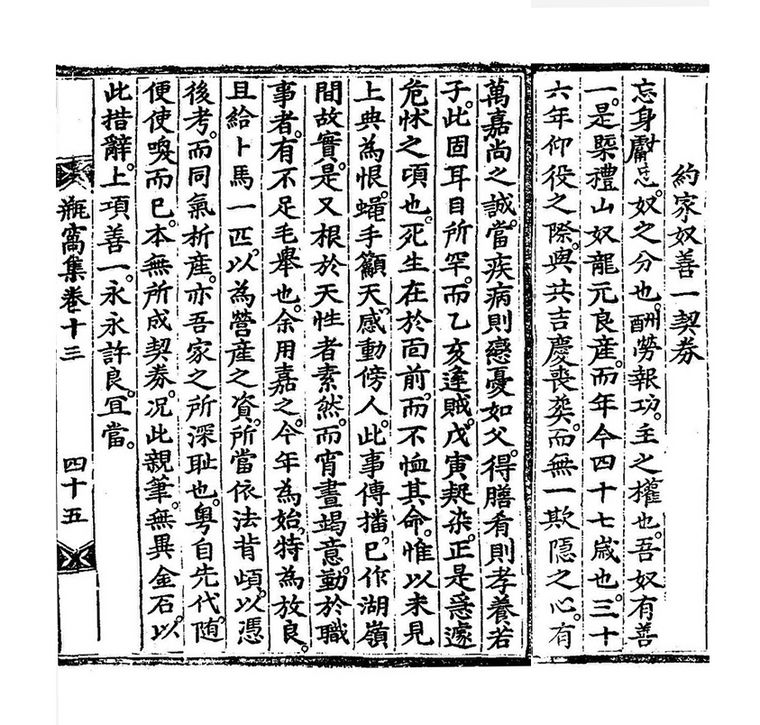 約家奴善一契券
忘身獻忠。奴之分也。酬勞報功。主之權也。吾奴有善
一。是槩禮山奴龍元良産。而年今四十七歲也。三十
六年仰役之際。與共吉慶喪葬。而無一欺隱之心。有
萬嘉尚之誠。當疾病則戀憂如父。得膳肴則孝養若
子。此固耳目所罕。而乙亥逢賊。戊寅染。正是急遽
危怵之頃也。死生在於面前。而不恤其命。惟以未見
上典為恨。蠅手籲天。感動傍人。此事傳播。已作湖嶺
間故實。是又根於天性者素然。而宵晝竭意。勤於職
事者。有不足毛舉也。余用嘉之。今年為始。特為放良。
且給卜馬一匹。以為營産之資。所當依法背頉。以憑
後考。而同氣析産。亦吾家之所深耻也。粤自先代。隨
便使喚而已。本無所成契券。况此親筆。無異金石。以
此措辭。上項善一。永永許良。宜當。
瓶窩集卷十三
四十五